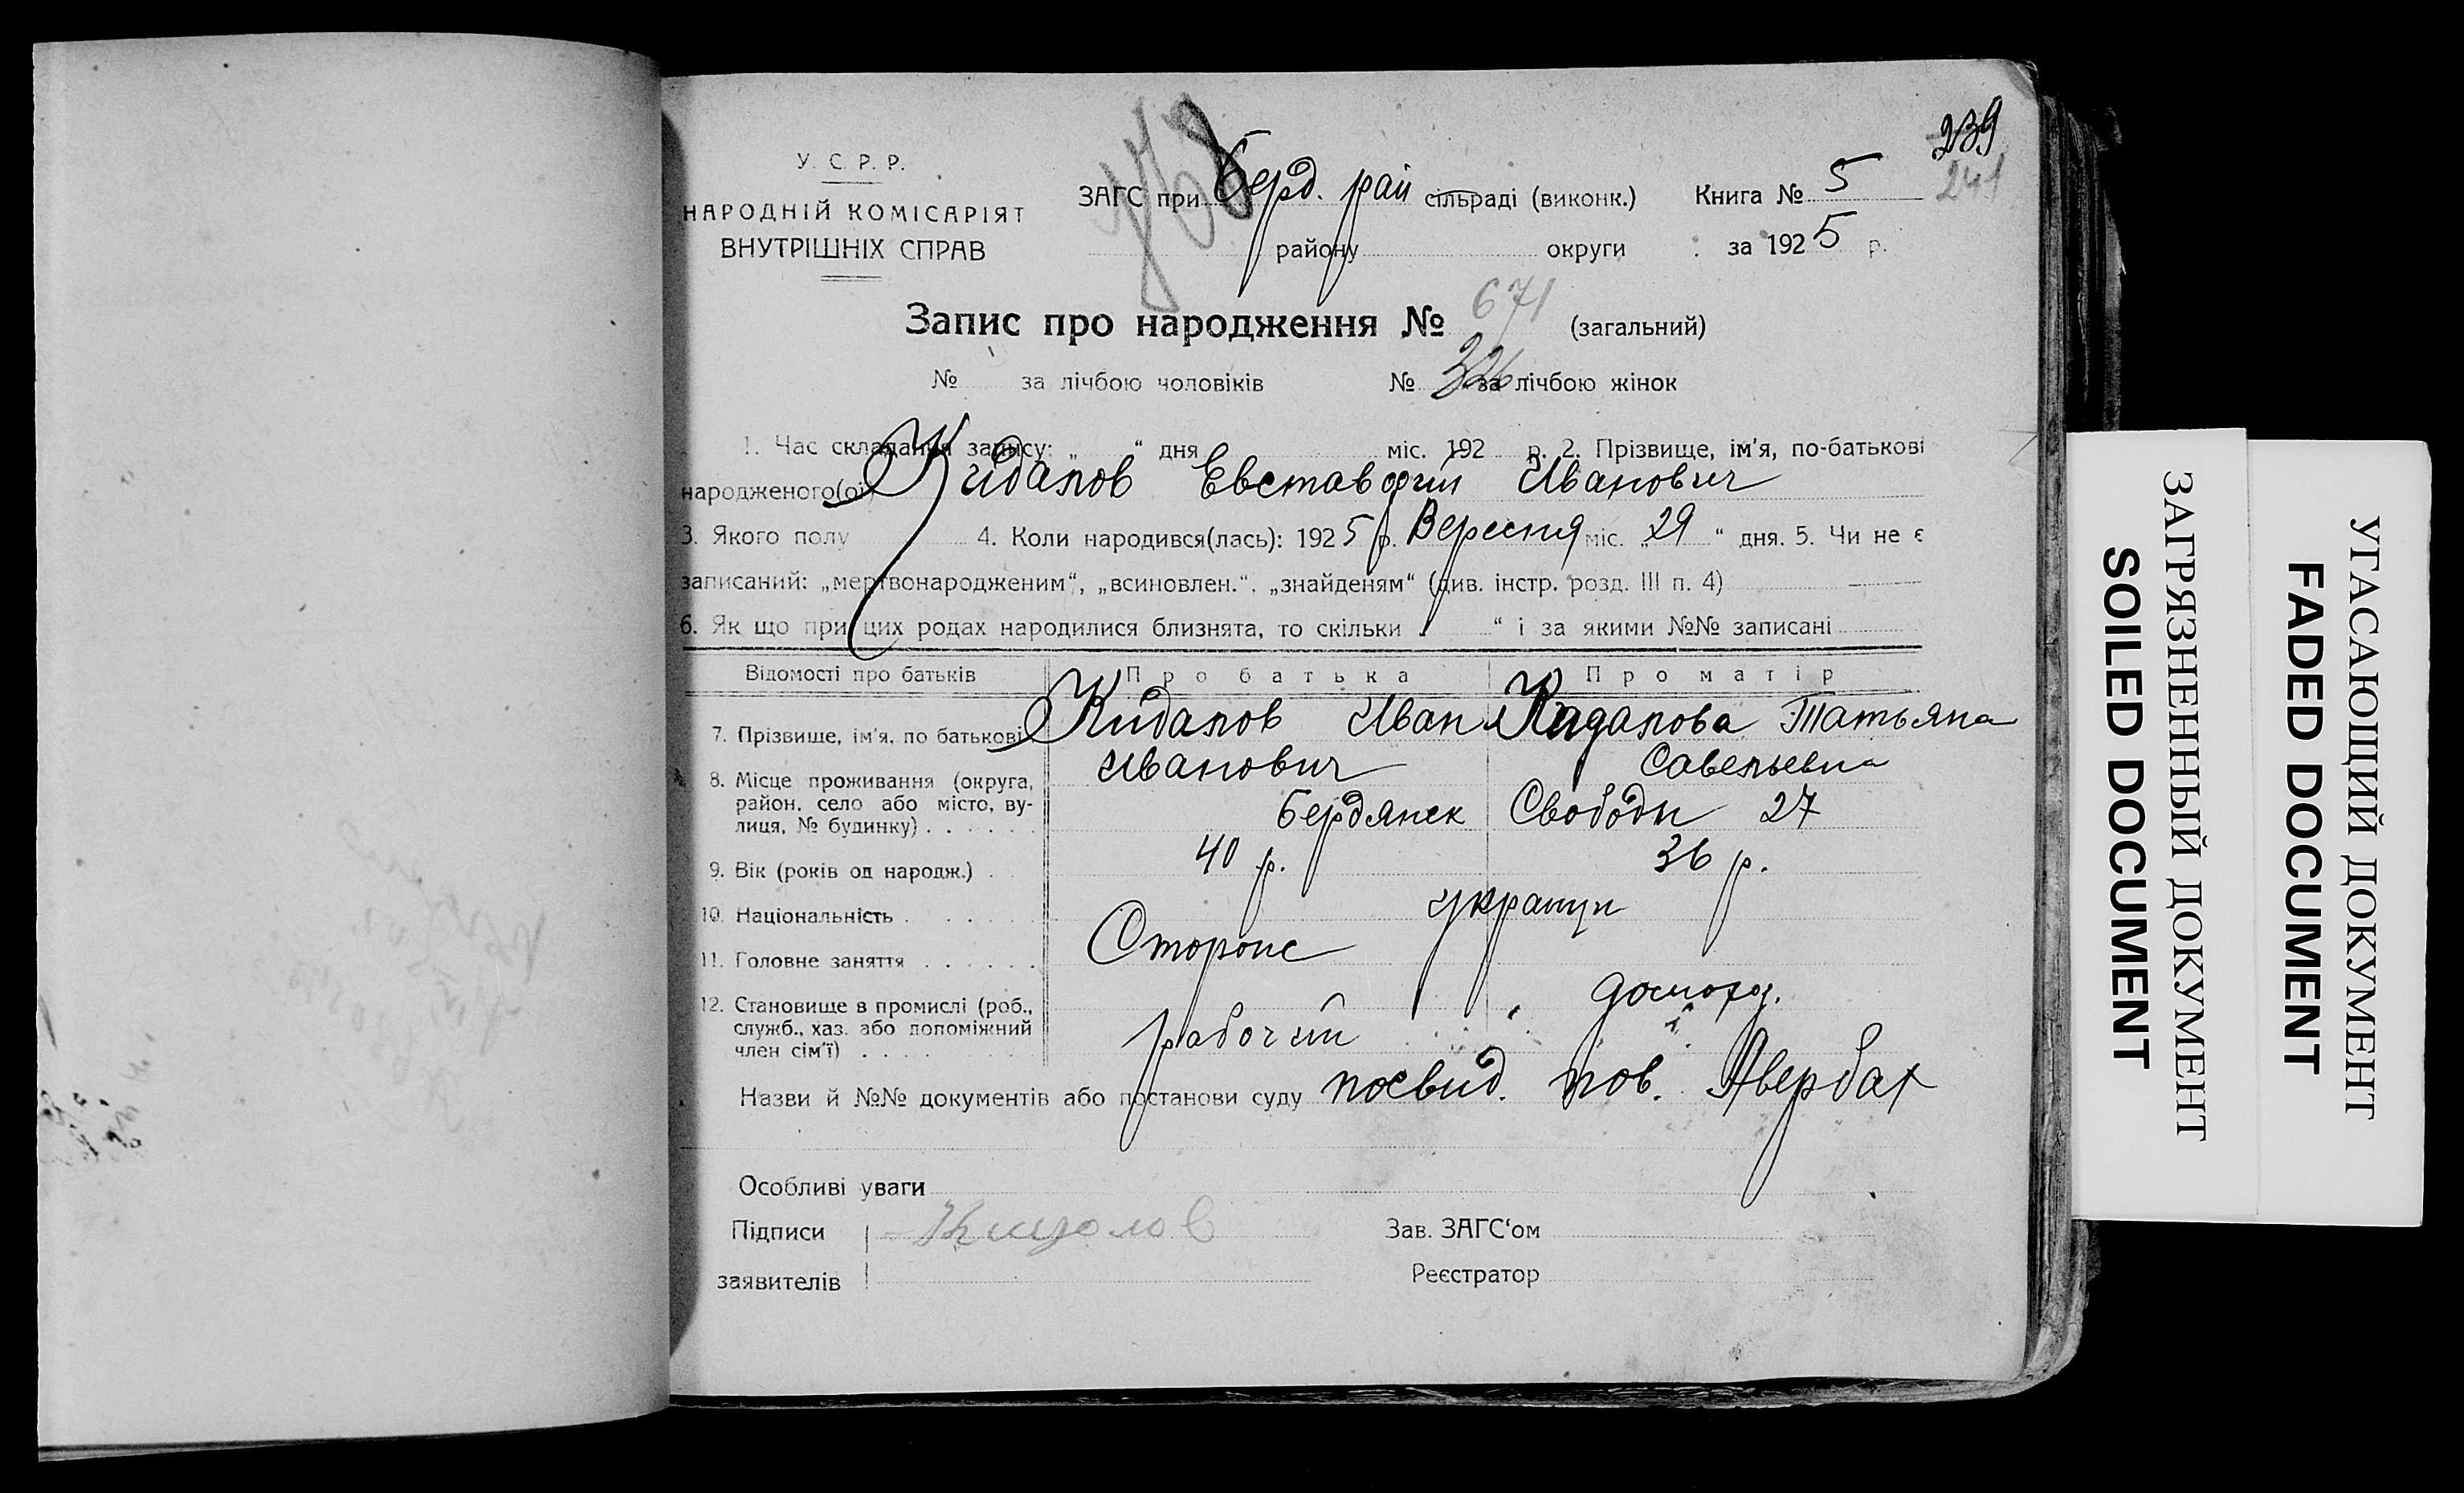 239
241
У. С. Р. Р.
НАРОДНІЙ КОМІСАРІЯТ
ВНУТРІШНІХ СПРАВ
ЗАГС при Берд. рай сільраді (виконк.) Книга № 5
району округи за 1925 р.
Запис про народження № 671 (загальний)
№ за лічбою чоловіків № 326 за лічбою жінок
1. Час складання запису: „ “ дня міс. 192 р. 2. Прізвище, ім'я, по-батькові
народженого(ої) Кидалов Евставфий Иванович
3. Якого полу 4. Коли народився(лась): 1925 р. Вересня міс. „29“ дня. 5. Чи не є
записаний: „мертвонародженим“, „всиновлен.“, „знайденям“ (див. інстр. розд. III п. 4)
6. Як що при цих родах народилися близнята, то скільки „ “ і за якими №№ записані
Відомості про батьків Про батька Про матір
7. Прізвище, ім'я, по батькові Кидалов Иван Кидалова Татьяна
Иванович Савельевна
8. Місце проживання (округа,
район, село або місто, ву-
лиця, № будинку) Бердянск Свободи 27
9. Вік (років од народж.) 40 р. 36 р.
10. Національність украинци
11. Головне заняття Сторож
домохоз.
12. Становище в промислі (роб.,
служб., хаз. або допоміжний
член сім'ї) рабочий
Назви й №№ документів або постанови суду посвид. пов. Авербах
Особливі уваги
Підписи Кидолов Зав. ЗАГС'ом
заявителів Реєстратор
ЗАГРЯЗНЕННЫЙ ДОКУМЕНТ
SOILED DOCUMENT
УГАСАЮЩИЙ ДОКУМЕНТ
FADED DOCUMENT